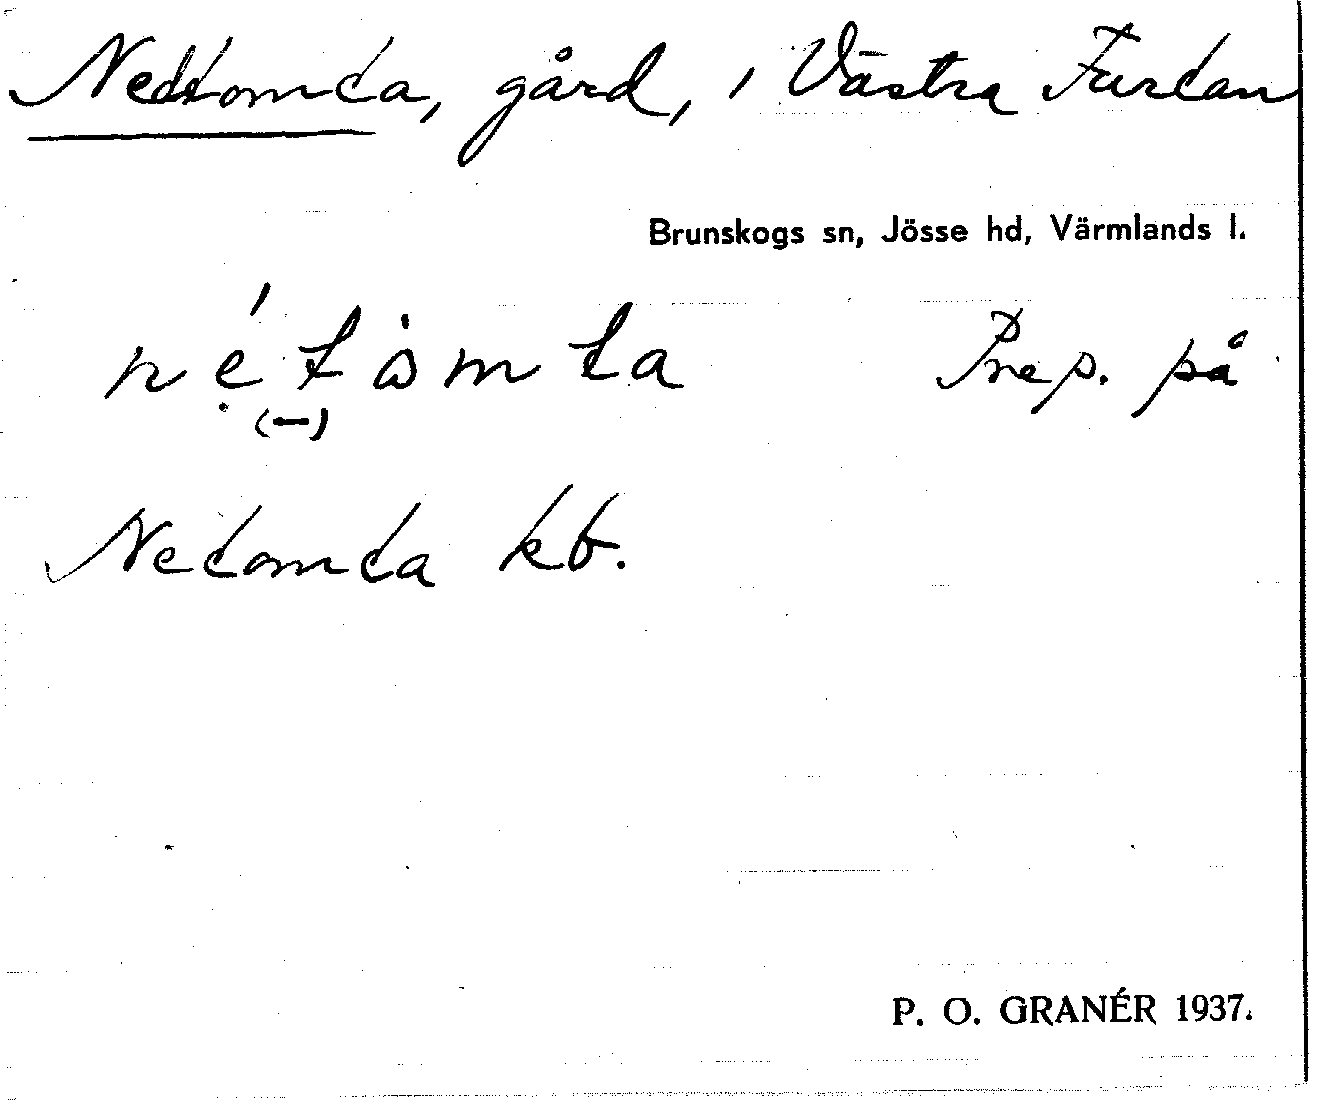 Nedtomta, gård, i Västra Furtan
Brunskogs sn, Jösse hd, Värmlands l.
nétòmta Prep. på
(–)
Netomta kb.
P. O. GRANÉR 1937.